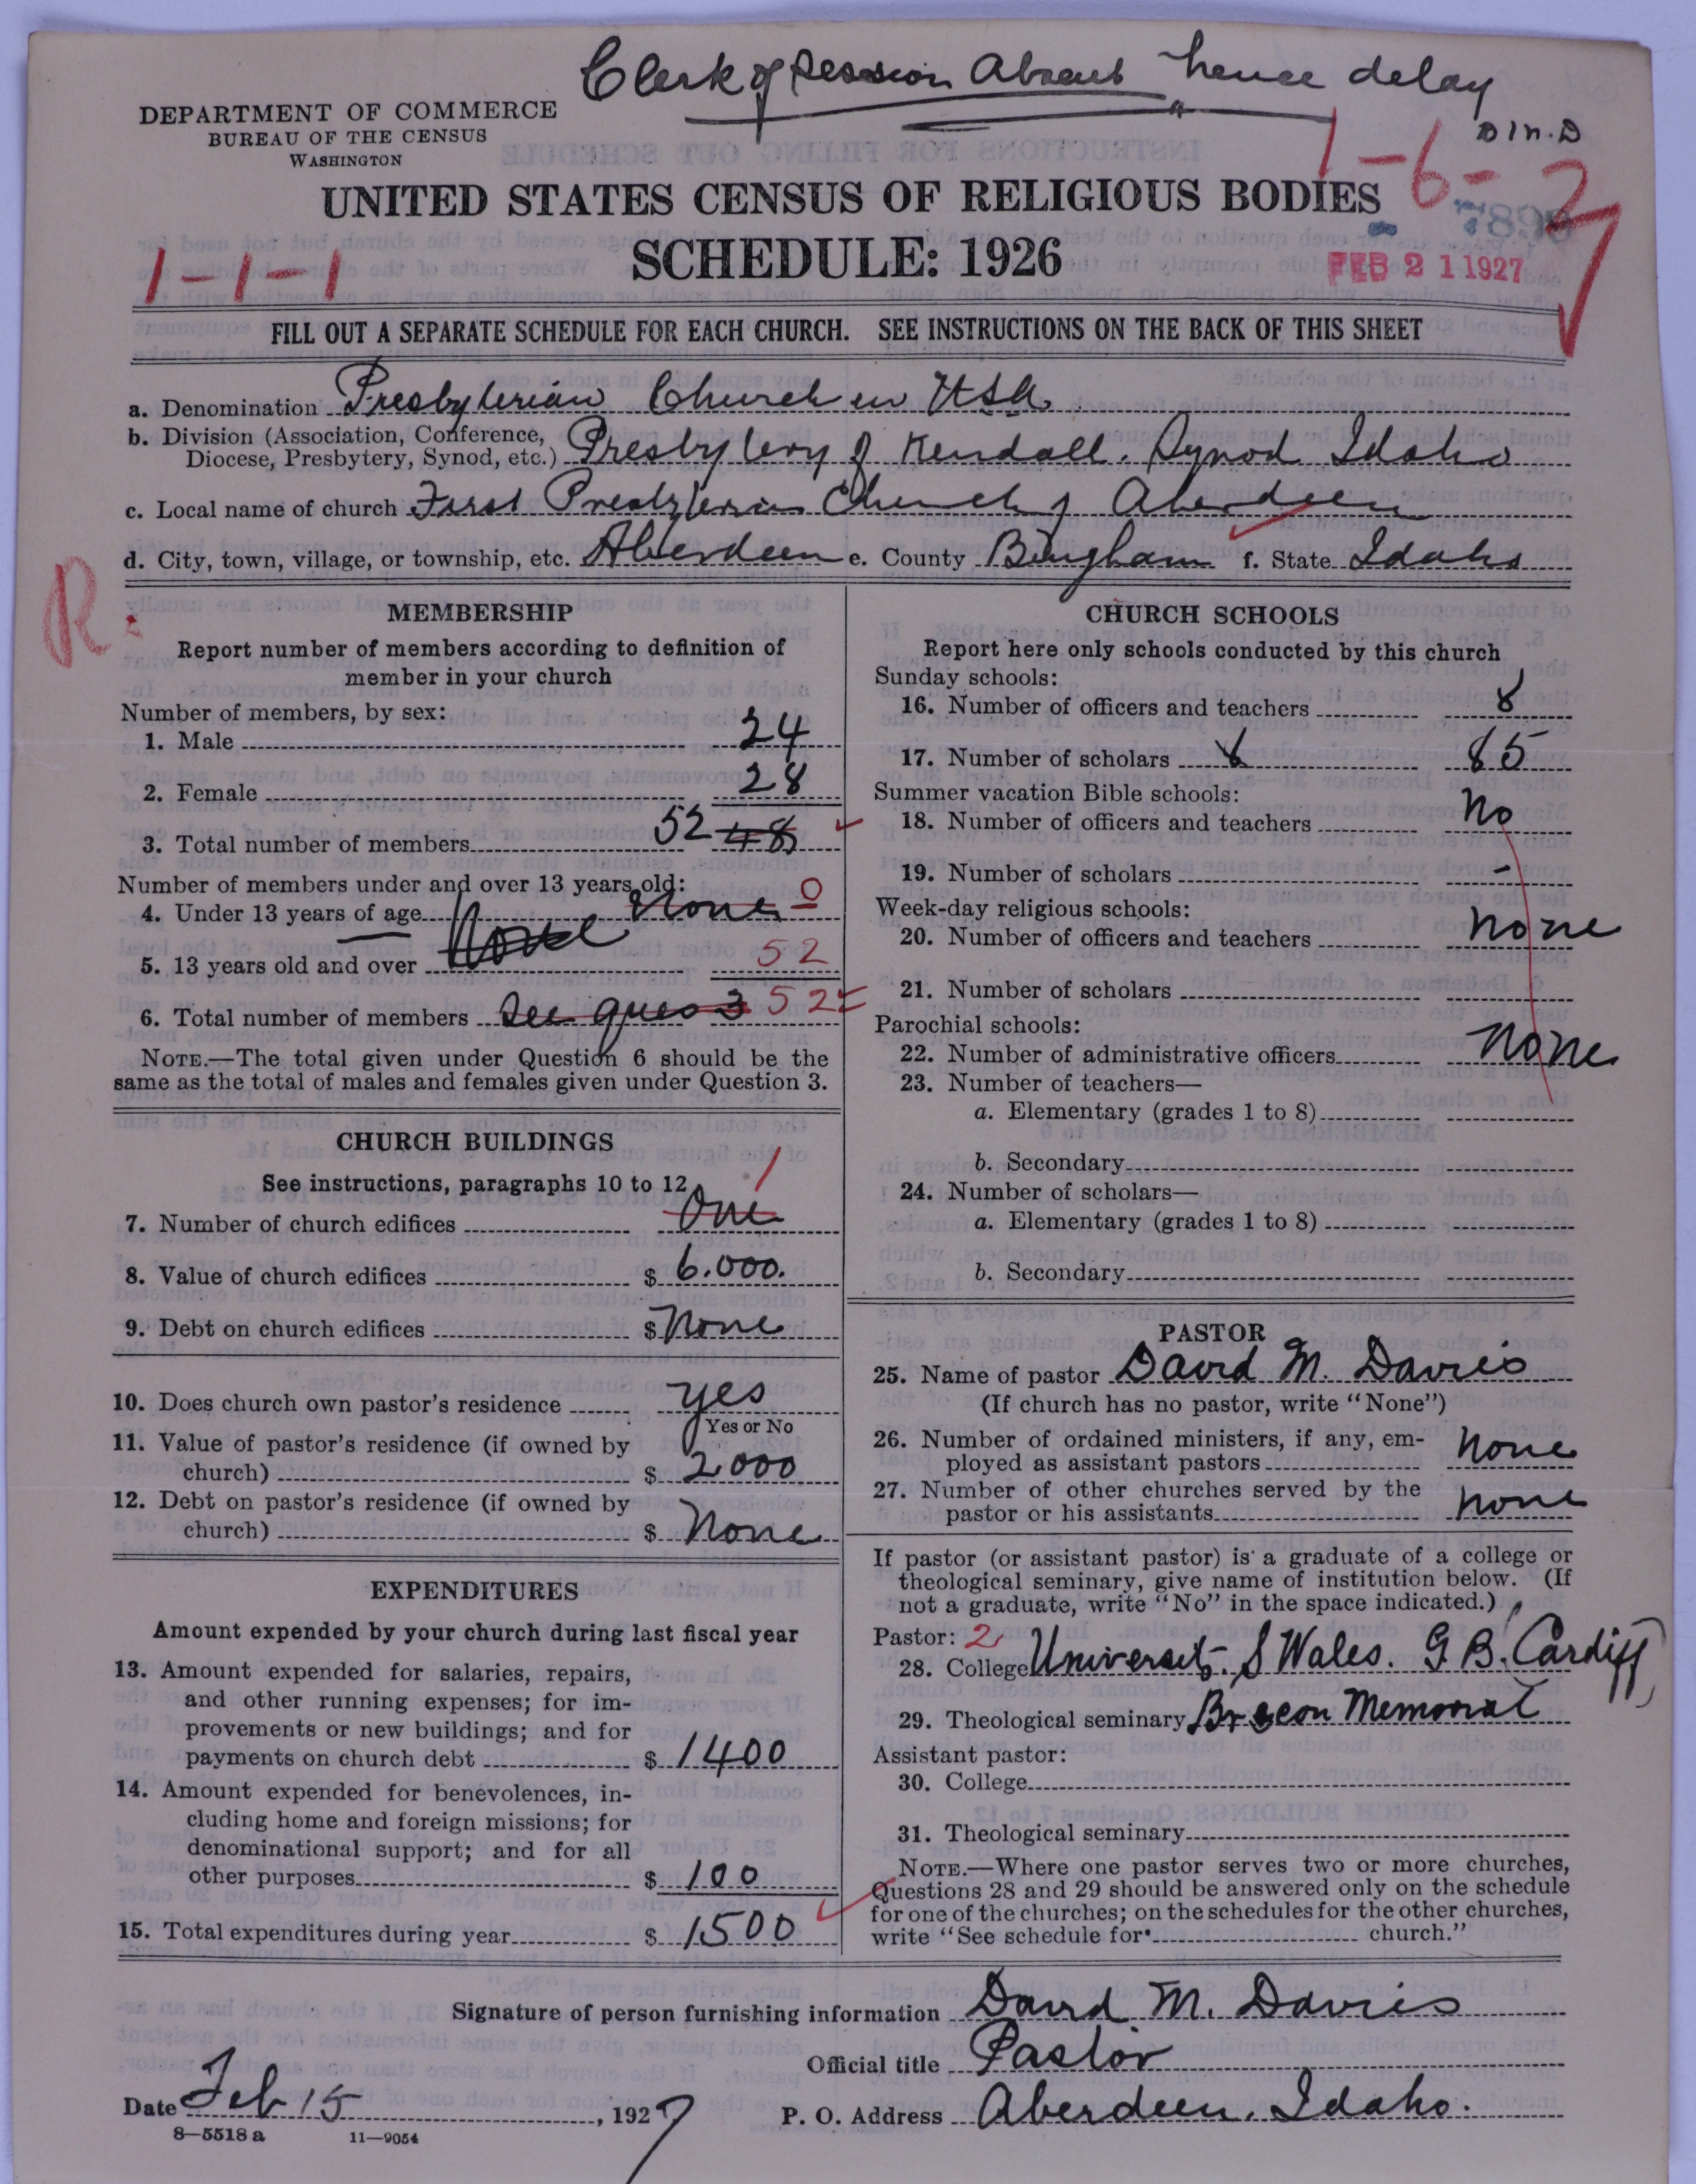 Clerk of Session Absent hence delay
D M. D
DEPARTMENT OF COMMERCE
BUREAU OF THE CENSUS
WASHINGTON
1-6-
UNITED STATES CENSUS OF RELIGIOUS BODIES
SCHEDULE: 1926
1-1-1
FEB 21 1927
FILL OUT A SEPARATE SCHEDULE FOR EACH CHURCH. SEE INSTRUCTIONS ON THE BACK OF THIS SHEET
a. Denomination Presbyterian Church in USA.
b. Division (Association, Conference,
Diocese, Presbytery, Synod, etc.) Presbytery of Kendall. Synod Idaho
c. Local name of church First Presbyterian Church of Aberdeen
d. City, town, village, or township, etc. Aberdeen e. County Bingham f. State Idaho
R
MEMBERSHIP
Report number of members according to definition of
member in your church
Number of members, by sex:
1. Male 24
2. Female 28
3. Total number of members 52 48
Number of members under and over 13 years old:
4. Under 13 years of age None 0
5. 13 years old and over None 52
6. Total number of members See ques 3 52
NOTE.—The total given under Question 6 should be the
same as the total of males and females given under Question 3.
CHURCH BUILDINGS
See instructions, paragraphs 10 to 12
7. Number of church edifices One 1
8. Value of church edifices $ 6.000.
9. Debt on church edifices $ None
10. Does church own pastor's residence yes
Yes or No
11. Value of pastor's residence (if owned by
church) $ 2000
12. Debt on pastor's residence (if owned by
church) $ None
EXPENDITURES
Amount expended by your church during last fiscal year
13. Amount expended for salaries, repairs,
and other running expenses; for im-
provements or new buildings; and for
payments on church debt $ 1400
14. Amount expended for benevolences, in-
cluding home and foreign missions; for
denominational support; and for all
other purposes $ 100
15. Total expenditures during year $ 1500
CHURCH SCHOOLS
Report here only schools conducted by this church
Sunday schools:
16. Number of officers and teachers 8
17. Number of scholars 85
Summer vacation Bible schools:
18. Number of officers and teachers No
19. Number of scholars -
Week-day religious schools:
20. Number of officers and teachers none
21. Number of scholars
Parochial schools:
22. Number of administrative officers none
23. Number of teachers—
a. Elementary (grades 1 to 8)
b. Secondary
24. Number of scholars—
a. Elementary (grades 1 to 8)
b. Secondary
PASTOR
25. Name of pastor David M. Davies
(If church has no pastor, write "None")
26. Number of ordained ministers, if any, em-
ployed as assistant pastors none
27. Number of other churches served by the
pastor or his assistants none
If pastor (or assistant pastor) is a graduate of a college or
theological seminary, give name of institution below. (If
not a graduate, write "No" in the space indicated.)
Pastor: 2
28. College University S Wales. G B. Cardiff
29. Theological seminary Brecon Memorial
Assistant pastor:
30. College
31. Theological seminary
NOTE.—Where one pastor serves two or more churches,
Questions 28 and 29 should be answered only on the schedule
for one of the churches; on the schedules for the other churches,
write "See schedule for church."
Signature of person furnishing information David M. Davies
Official title Pastor
Date Feb 15, 1927 P. O. Address Aberdeen. Idaho.
8—5518 a 11—9054